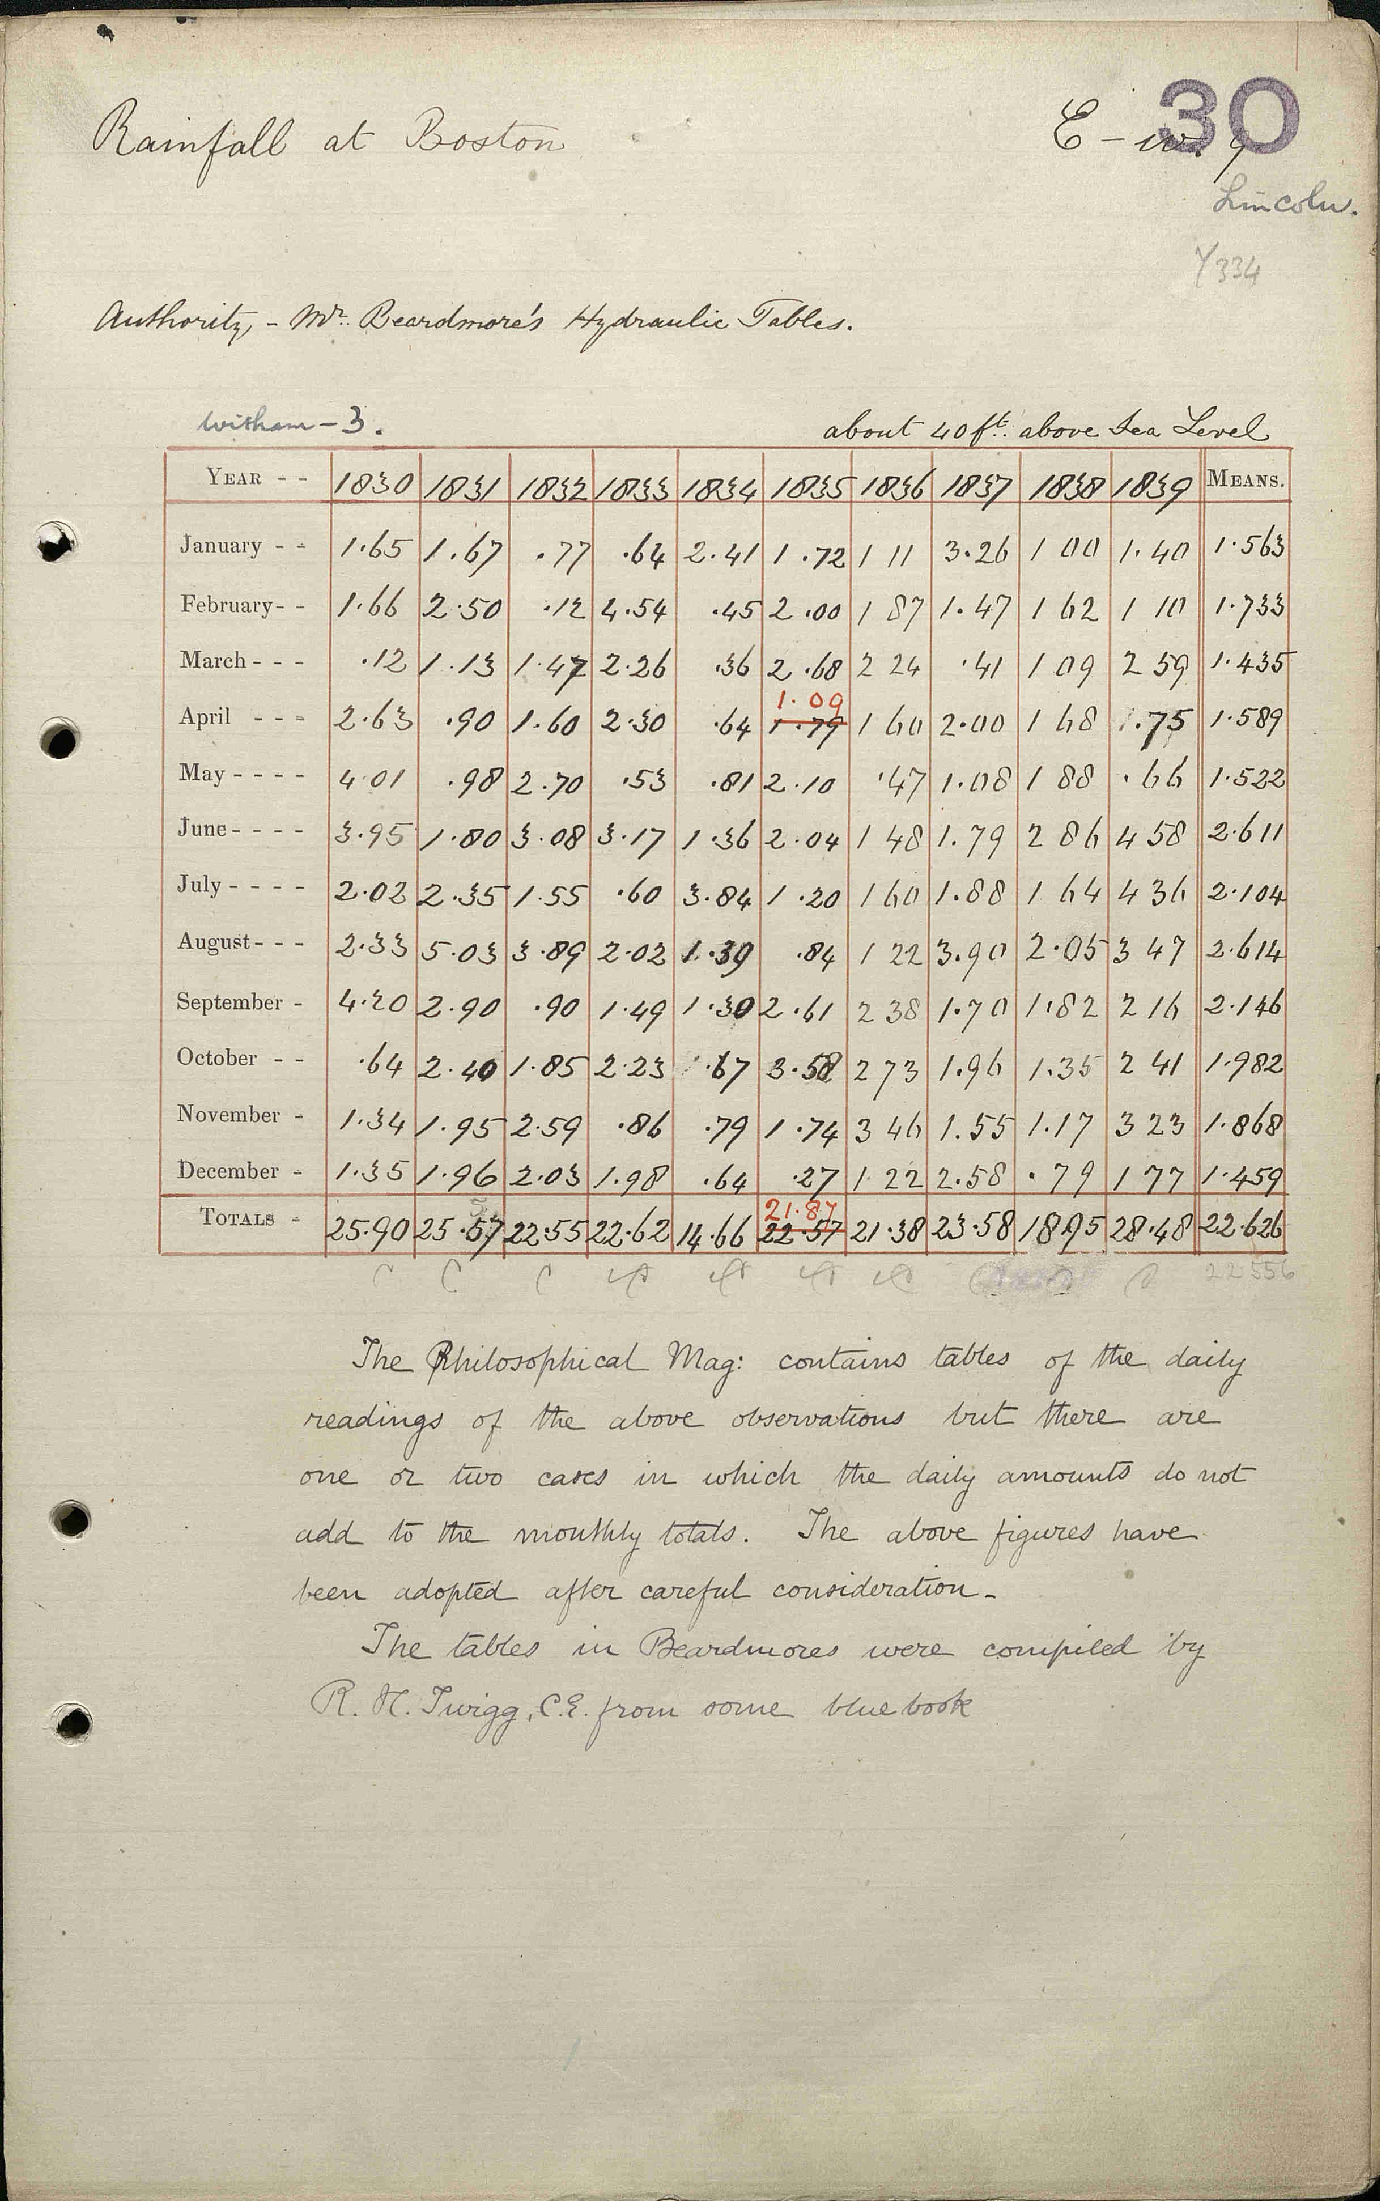 30
Rainfall at Boston
E - iv. 9
Lincoln.
334
Authority, - Mr. Beardmore's Hydraulic Tables.
Witham - 3.
about 40 ft. above Sea Level
YEAR - - 1830 1831 1832 1833 1834 1835 1836 1837 1838 1839 MEANS.
January - - 1.65 1.67 .77 .64 2.41 1.72 1 11 3.26 1 00 1.40 1.563
February - - 1.66 2.50 .12 4.54 .45 2.00 1 87 1.47 1 62 1 10 1.733
March - - - .12 1.13 1.47 2.26 .36 2.68 2 24 .41 1 09 2 59 1.435
1.09
April - - - 2.63 .90 1.60 2.30 .64 1.79 1 60 2.00 1 68 1.75 1.589
May - - - - 4 01 .98 2.70 .53 .81 2.10 .47 1.08 1 88 .66 1.522
June - - - - 3.95 1.80 3.08 3.17 1.36 2.04 1 48 1.79 2 86 4 58 2.611
July - - - - 2.02 2.35 1.55 .60 3.84 1.20 1 60 1.88 1 64 4 36 2.104
August - - - 2.33 5.03 3.89 2.02 1.39 .84 1 22 3.90 2.05 3 47 2.614
September - 4.20 2.90 .90 1.49 1.30 2.61 2 38 1.70 1.82 2 16 2.146
October - - .64 2.40 1.85 2.23 .67 3.58 2 73 1.96 1.35 2 41 1.982
November - 1.34 1.95 2.59 .86 .79 1.74 3 46 1.55 1.17 3 23 1.868
December - 1.35 1.96 2.03 1.98 .64 .27 1 22 2.58 .79 1 77 1.459
21.87
TOTALS - 25.90 25.57 22.55 22.62 14.66 22.57 21.38 23.58 18.95 28.48 22.626
22 556
The Philosophical Mag: contains tables of the daily
readings of the above observations but there are
one or two cases in which the daily amounts do not
add to the monthly totals. The above figures have
been adopted after careful consideration -
The tables in Beardmores were compiled by
R. H. Twigg, C.E. from some blue book